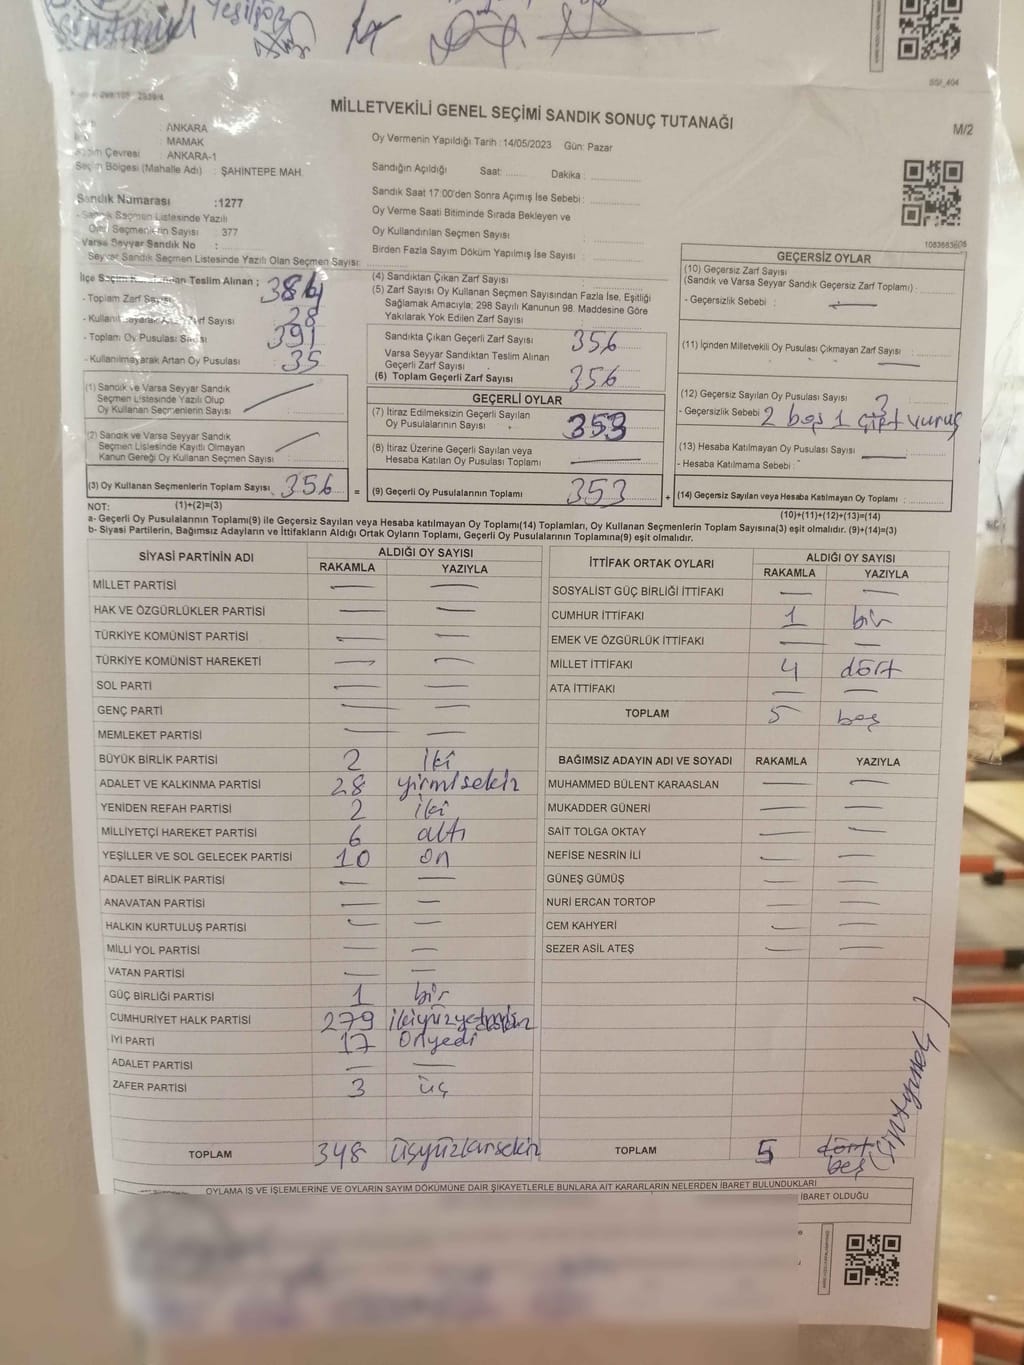 Yeşilöz
SSI_404
MİLLETVEKİLİ GENEL SEÇİMİ SANDIK SONUÇ TUTANAĞI
M/2
: ANKARA
: MAMAK
Seçim Çevresi : ANKARA-1
Seçim Bölgesi (Mahalle Adı) : ŞAHİNTEPE MAH.
Oy Vermenin Yapıldığı Tarih : 14/05/2023 Gün: Pazar
Sandığın Açıldığı Saat: Dakika :
Sandık Saat 17:00'den Sonra Açımış İse Sebebi :
Oy Verme Saati Bitiminde Sırada Bekleyen ve
Oy Kullandırılan Seçmen Sayısı :
Birden Fazla Sayım Döküm Yapılmış İse Sayısı :
Sandık Numarası :1277
- Sandık Seçmen Listesinde Yazılı
Olan Seçmenlerin Sayısı 377
Varsa Seyyar Sandık No :
Seyyar Sandık Seçmen Listesinde Yazılı Olan Seçmen Sayısı:
İlçe Seçim Teslim Alınan :
- Toplam Zarf Sayısı 384
- Kullanılmayarak Artan Zarf Sayısı 28
- Toplam Oy Pusulası Sayısı 391
- Kullanılmayarak Artan Oy Pusulası : 35
(1) Sandık ve Varsa Seyyar Sandık
Seçmen Listesinde Yazılı Olup
Oy Kullanan Seçmenlerin Sayısı :
(2) Sandık ve Varsa Seyyar Sandık
Seçmen Listesinde Kayıtlı Olmayan
Kanun Gereği Oy Kullanan Seçmen Sayısı :
(3) Oy Kullanan Seçmenlerin Toplam Sayısı 356 =
(1)+(2)=(3)
(4) Sandıktan Çıkan Zarf Sayısı :
(5) Zarf Sayısı Oy Kullanan Seçmen Sayısından Fazla İse, Eşitliği
Sağlamak Amacıyla; 298 Sayılı Kanunun 98. Maddesine Göre
Yakılarak Yok Edilen Zarf Sayısı :
Sandıkta Çıkan Geçerli Zarf Sayısı : 356
Varsa Seyyar Sandıktan Teslim Alınan
Geçerli Zarf Sayısı :
(6) Toplam Geçerli Zarf Sayısı 356
GEÇERLİ OYLAR
(7) İtiraz Edilmeksizin Geçerli Sayılan
Oy Pusulalarının Sayısı : 353
(8) İtiraz Üzerine Geçerli Sayılan veya
Hesaba Katılan Oy Pusulası Toplamı
(9) Geçerli Oy Pusulalarının Toplamı 353 +
1083683606
GEÇERSİZ OYLAR
(10) Geçersiz Zarf Sayısı
(Sandık ve Varsa Seyyar Sandık Geçersiz Zarf Toplamı) :
- Geçersizlik Sebebi :
(11) İçinden Milletvekili Oy Pusulası Çıkmayan Zarf Sayısı :
(12) Geçersiz Sayılan Oy Pusulası Sayısı 3
- Geçersizlik Sebebi 2 boş 1 çift vuruş
(13) Hesaba Katılmayan Oy Pusulası Sayısı
- Hesaba Katılmama Sebebi :
(14) Geçersiz Sayılan veya Hesaba Katılmayan Oy Toplamı :
(10)+(11)+(12)+(13)=(14)
NOT:
a- Geçerli Oy Pusulalarının Toplamı(9) ile Geçersiz Sayılan veya Hesaba katılmayan Oy Toplamı(14) Toplamları, Oy Kullanan Seçmenlerin Toplam Sayısına(3) eşit olmalıdır. (9)+(14)=(3)
b- Siyasi Partilerin, Bağımsız Adayların ve İttifakların Aldığı Ortak Oyların Toplamı, Geçerli Oy Pusulalarının Toplamına(9) eşit olmalıdır.
SİYASİ PARTİNİN ADI ALDIĞI OY SAYISI
RAKAMLA YAZIYLA
MİLLET PARTİSİ
HAK VE ÖZGÜRLÜKLER PARTİSİ
TÜRKİYE KOMÜNİST PARTİSİ
TÜRKİYE KOMÜNİST HAREKETİ
SOL PARTİ
GENÇ PARTİ
MEMLEKET PARTİSİ
BÜYÜK BİRLİK PARTİSİ 2 iki
ADALET VE KALKINMA PARTİSİ 28 yirmisekiz
YENİDEN REFAH PARTİSİ 2 iki
MİLLİYETÇİ HAREKET PARTİSİ 6 altı
YEŞİLLER VE SOL GELECEK PARTİSİ 10 on
ADALET BİRLİK PARTİSİ
ANAVATAN PARTİSİ
HALKIN KURTULUŞ PARTİSİ
MİLLİ YOL PARTİSİ
VATAN PARTİSİ
GÜÇ BİRLİĞİ PARTİSİ 1 bir
CUMHURİYET HALK PARTİSİ 279
İYİ PARTİ 17 Onyedi
ADALET PARTİSİ
ZAFER PARTİSİ 3 üç
TOPLAM 348 üçyüzkırksekiz
İTTİFAK ORTAK OYLARI ALDIĞI OY SAYISI
RAKAMLA YAZIYLA
SOSYALİST GÜÇ BİRLİĞİ İTTİFAKI
CUMHUR İTTİFAKI 1 bir
EMEK VE ÖZGÜRLÜK İTTİFAKI
MİLLET İTTİFAKI 4 dört
ATA İTTİFAKI
TOPLAM 5 beş
BAĞIMSIZ ADAYIN ADI VE SOYADI RAKAMLA YAZIYLA
MUHAMMED BÜLENT KARAASLAN
MUKADDER GÜNERİ
SAİT TOLGA OKTAY
NEFİSE NESRİN İLİ
GÜNEŞ GÜMÜŞ
NURİ ERCAN TORTOP
CEM KAHYERİ
SEZER ASİL ATEŞ
TOPLAM 5 dört
beş
OYLAMA İŞ VE İŞLEMLERİNE VE OYLARIN SAYIM DÖKÜMÜNE DAİR ŞİKAYETLERLE BUNLARA AİT KARARLARIN NELERDEN İBARET BULUNDUKLARI
İBARET OLDUĞU